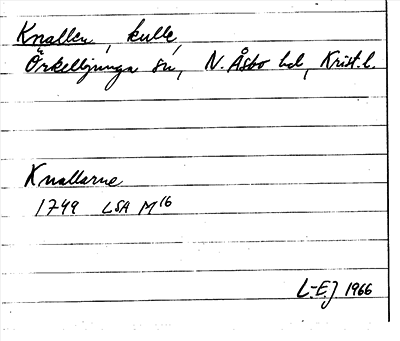 Knallen, kulle,
Örkelljunga sn, N. Åsbo hd, Krist. l.
Knallarne
1749 LSA M16
L-EJ 1966